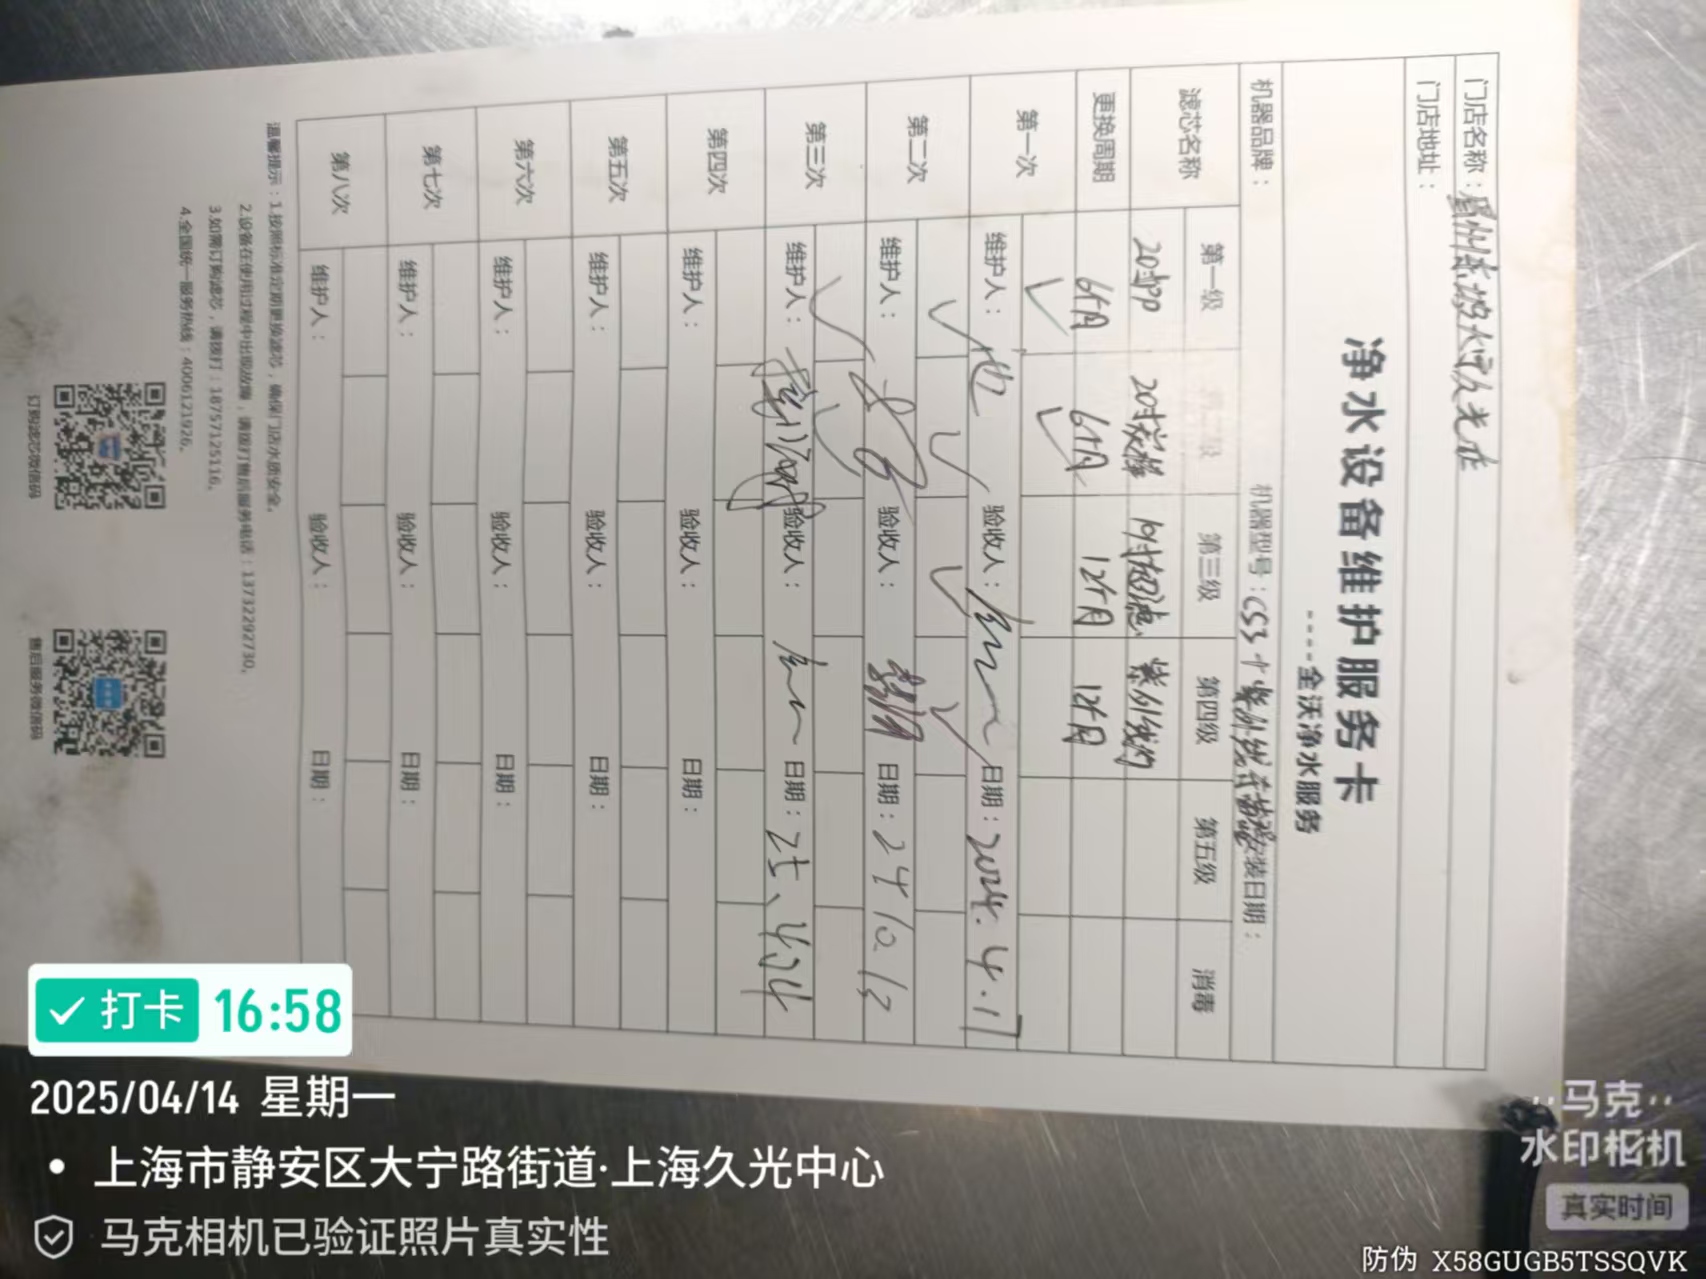 净水设备维护服务卡
----全沃净水服务
门店名称：
门店地址：
机器品牌： 机器型号：CS3+紫外线 安装日期：
滤芯名称 第一级 第三级 第四级 第五级 消毒
20寸PP 20寸 19寸 紫外线灯
更换周期 6个月 6个月 12个月 12个月
第一次 ✓ ✓ ✓ ✓
维护人： 验收人： 日期：2024.4.17
第二次 ✓ ✓
维护人： 验收人： 日期：24 10 13
第三次 ✓ ✓
维护人： 验收人： 日期：25、4月14
第四次
维护人： 验收人： 日期：
第五次
维护人： 验收人： 日期：
第六次
维护人： 验收人： 日期：
第七次
维护人： 验收人： 日期：
第八次
维护人： 验收人： 日期：
温馨提示：1.按照标准定期更换滤芯，确保门店水质安全。
2.设备在使用过程中出现故障，请拨打售后服务电话：13732292730。
3.如需订购滤芯，请拨打：18757125116。
4.全国统一服务热线：4006121926。
订购滤芯微信码
售后服务微信码
打卡 16:58
2025/04/14 星期一
上海市静安区大宁路街道·上海久光中心
马克相机已验证照片真实性
马克
水印相机
真实时间
防伪 X58GUGB5TSSQVK